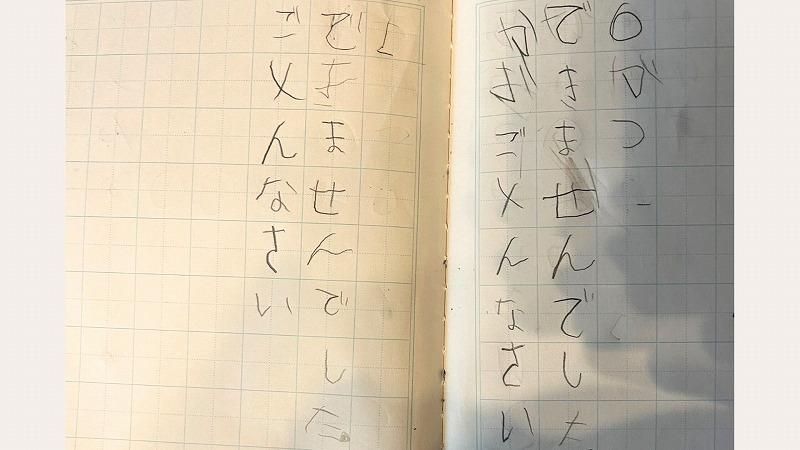 〇がつ
できませんでした
ごメんなさい
できませんでした
ごメんなさい